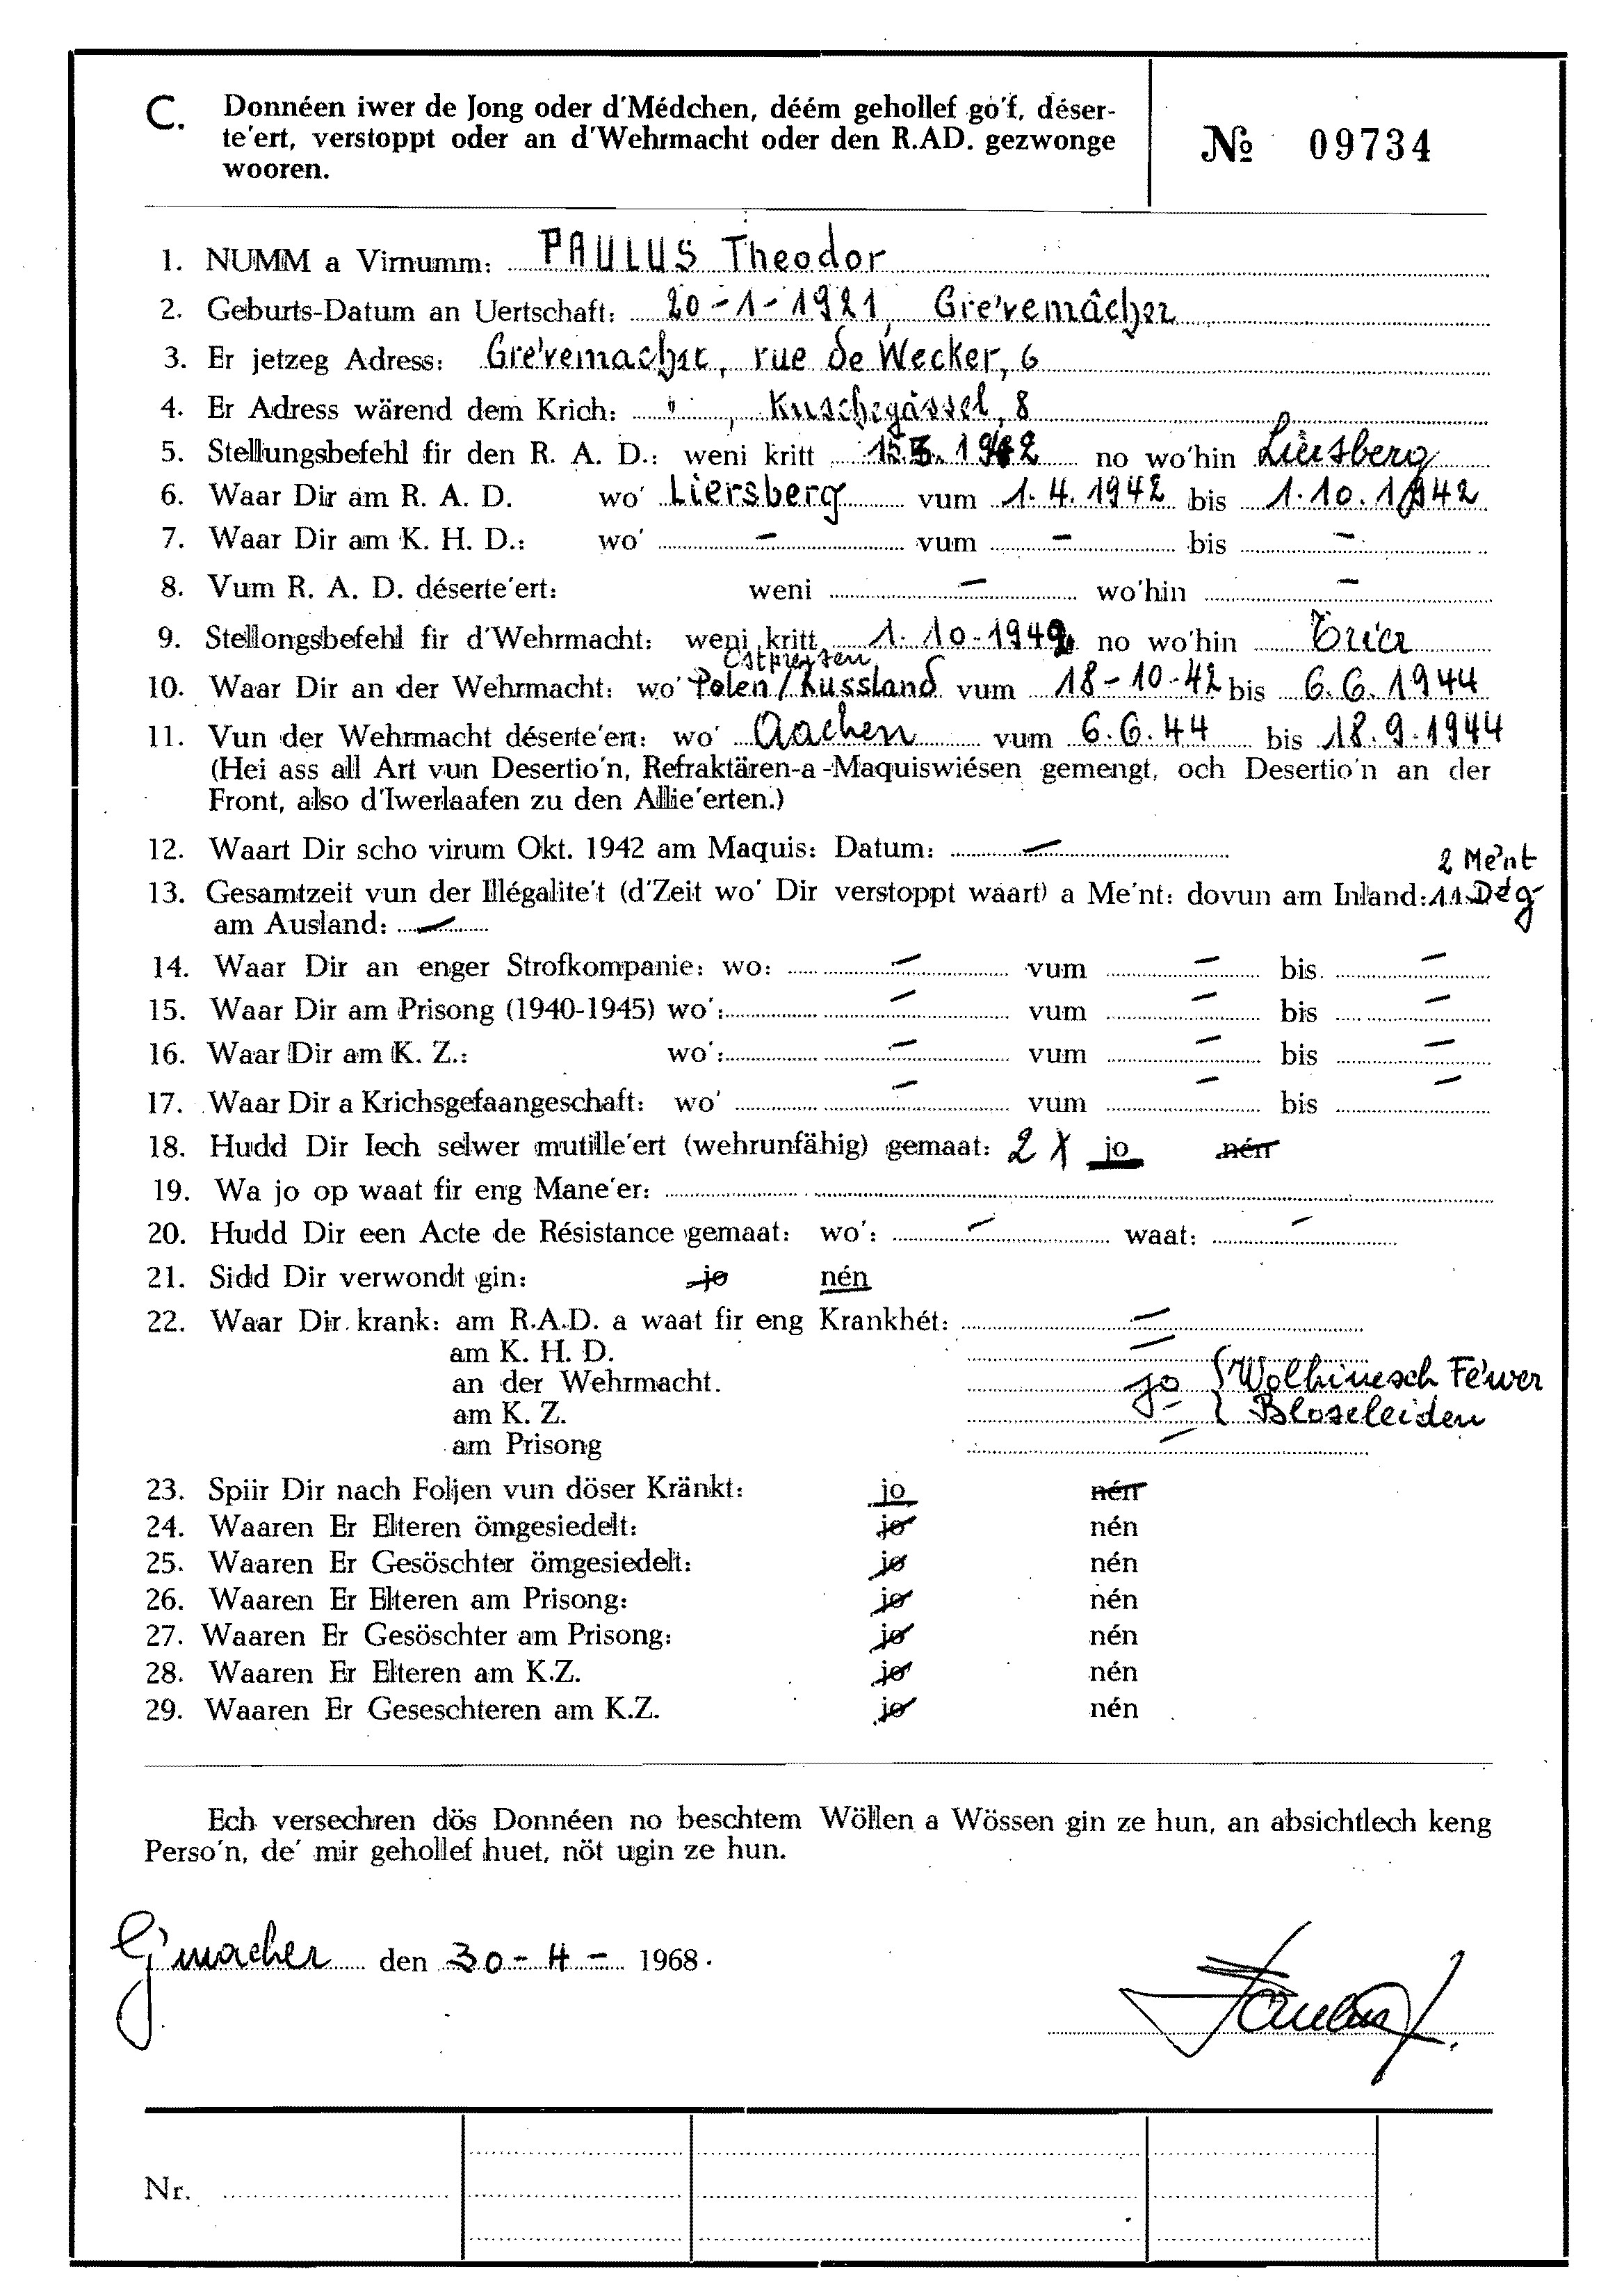 C. Donnéen iwer de Jong oder d'Médchen, déém gehollef go'f, déser-
te'ert, verstoppt oder an d'Wehrmacht oder den R.AD. gezwonge
wooren.
№ 09734
1. NUMM a Virnumm: PAULUS Theodor
2. Geburts-Datum an Uertschaft: 20-1-1921, Gre'vemâcher
3. Er jetzeg Adress: Gre'vemacher, rue de Wecker, 6
4. Er Adress wärend dem Krich: " , 8
5. Stellungsbefehl fir den R. A. D.: weni kritt 15.3.1942 no wo'hin Liersberg
6. Waar Dir am R. A. D. wo' Liersberg vum 1.4.1942 bis 1.10.1942
7. Waar Dir am K. H. D.: wo' – vum – bis –
8. Vum R. A. D. déserte'ert: weni – wo'hin –
9. Stellongsbefehl fir d'Wehrmacht: weni kritt 1.10.1942 no wo'hin Trier
Ostpreisen
10. Waar Dir an der Wehrmacht: wo' Polen/Russland vum 18-10-42 bis 6.6.1944
11. Vun der Wehrmacht déserte'ert: wo' Aachen vum 6.6.44 bis 18.9.1944
(Hei ass all Art vun Desertio'n, Refraktären-a-Maquiswiésen gemengt, och Desertio'n an der
Front, also d'Iwerlaafen zu den Allie'erten.)
12. Waart Dir scho virum Okt. 1942 am Maquis: Datum: –
2 Me'nt
13. Gesamtzeit vun der Illégalite't (d'Zeit wo' Dir verstoppt waart) a Me'nt: dovun am Inland: 11 Deg
am Ausland: –
14. Waar Dir an enger Strofkompanie: wo: – vum – bis. –
15. Waar Dir am Prisong (1940-1945) wo': – vum – bis –
16. Waar Dir am K. Z.: wo': – vum – bis –
17. Waar Dir a Krichsgefaangeschaft: wo' – vum – bis –
18. Hudd Dir Iech selwer mutille'ert (wehrunfähig) gemaat: 2 X jo nén
19. Wa jo op waat fir eng Mane'er:
20. Hudd Dir een Acte de Résistance gemaat: wo': – waat: –
21. Sidd Dir verwondt gin: jo nén
22. Waar Dir krank: am R.A.D. a waat fir eng Krankhét: –
am K. H. D. –
an der Wehrmacht. jo { Wolhinesch Fe'wer
am K. Z. Bloseleiden
am Prisong –
23. Spiir Dir nach Foljen vun döser Kränkt: jo nén
24. Waaren Er Elteren ömgesiedelt: jo nén
25. Waaren Er Gesöschter ömgesiedelt: jo nén
26. Waaren Er Elteren am Prisong: jo nén
27. Waaren Er Gesöschter am Prisong: jo nén
28. Waaren Er Elteren am K.Z. jo nén
29. Waaren Er Geseschteren am K.Z. jo nén
Ech versechren dös Donnéen no beschtem Wöllen a Wössen gin ze hun, an absichtlech keng
Perso'n, de' mir gehollef huet, nöt ugin ze hun.
G'macher den 30-4- 1968.
Paulus
Nr.